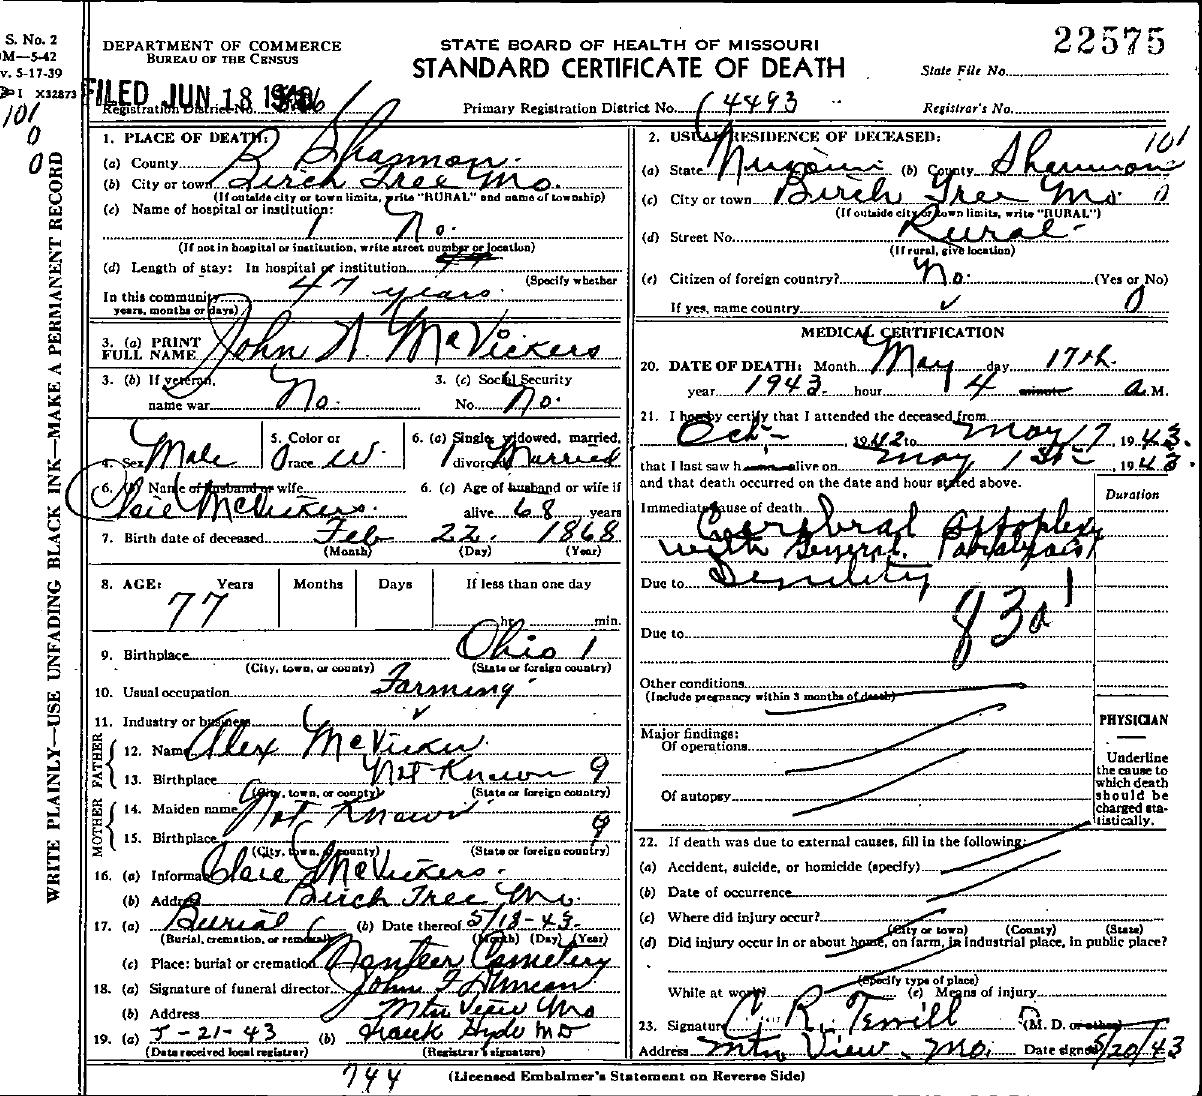 S. No. 2
M—5-42
v. 5-17-39
I X32873
101
0
0
WRITE PLAINLY—USE UNFADING BLACK INK—MAKE A PERMANENT RECORD
DEPARTMENT OF COMMERCE
BUREAU OF THE CENSUS
STATE BOARD OF HEALTH OF MISSOURI
STANDARD CERTIFICATE OF DEATH
22575
State File No.
FILED JUN 18
Registration District No.
Primary Registration District No. 4493
Registrar's No.
1. PLACE OF DEATH:
(a) County Shannon
(b) City or town Birch Tree Mo.
(If outside city or town limits, write "RURAL" and name of township)
(c) Name of hospital or institution:
No.
(If not in hospital or institution, write street number or location)
(d) Length of stay: In hospital or institution
(Specify whether
In this community 47 years
years, months or days)
3. (a) PRINT
FULL NAME John N. McVickers
3. (b) If veteran,
name war No.
3. (c) Social Security
No. No.
4. Sex Male
5. Color or
race W.
6. (a) Single, widowed, married,
divorced Married
6. (b) Name of husband or wife
McVickers
6. (c) Age of husband or wife if
alive 68 years
7. Birth date of deceased Feb 22. 1868
(Month) (Day) (Year)
8. AGE: Years Months Days If less than one day
77
hr. min.
9. Birthplace Ohio 1
(City, town, or county) (State or foreign country)
10. Usual occupation Farming
11. Industry or business
FATHER
12. Name Alex McVicker
13. Birthplace Not Known 9
(City, town, or county) (State or foreign country)
MOTHER
14. Maiden name Not Known
15. Birthplace 9
(City, town, or county) (State or foreign country)
16. (a) Informant McVickers
(b) Address Birch Tree Mo.
17. (a) Burial (b) Date thereof 5/18-43
(Burial, cremation, or removal) (Month) (Day) (Year)
(c) Place: burial or cremation Cemetery
18. (a) Signature of funeral director John F Duncan
(b) Address Mtn View Mo
19. (a) 5-21-43 (b) Hyde MD
(Date received local registrar) (Registrar's signature)
2. USUAL RESIDENCE OF DECEASED: 101
(a) State Missouri (b) County Shannon
(c) City or town Birch Tree Mo 0
(If outside city or town limits, write "RURAL")
(d) Street No. Rural
(If rural, give location)
(e) Citizen of foreign country? No. (Yes or No)
If yes, name country 0
MEDICAL CERTIFICATION
20. DATE OF DEATH: Month May day 17th
year 1943 hour 4 minute a M.
21. I hereby certify that I attended the deceased from
Oct 1942 to May 17 1943
that I last saw h alive on May 1943
and that death occurred on the date and hour stated above.
Duration
Immediate cause of death Cerebral
with General Paralysis
Due to Senility
830 1
Due to
Other conditions
(Include pregnancy within 3 months of death)
Major findings:
Of operations
Of autopsy
PHYSICIAN
Underline
the cause to
which death
should be
charged sta-
tistically.
22. If death was due to external causes, fill in the following:
(a) Accident, suicide, or homicide (specify)
(b) Date of occurrence
(c) Where did injury occur?
(City or town) (County) (State)
(d) Did injury occur in or about home, on farm, in industrial place, in public place?
(Specify type of place)
While at work? (e) Means of injury
23. Signature C. R. Terrill (M. D. or other)
Address Mtn View Mo. Date signed 5/20/43
744
(Licensed Embalmer's Statement on Reverse Side)